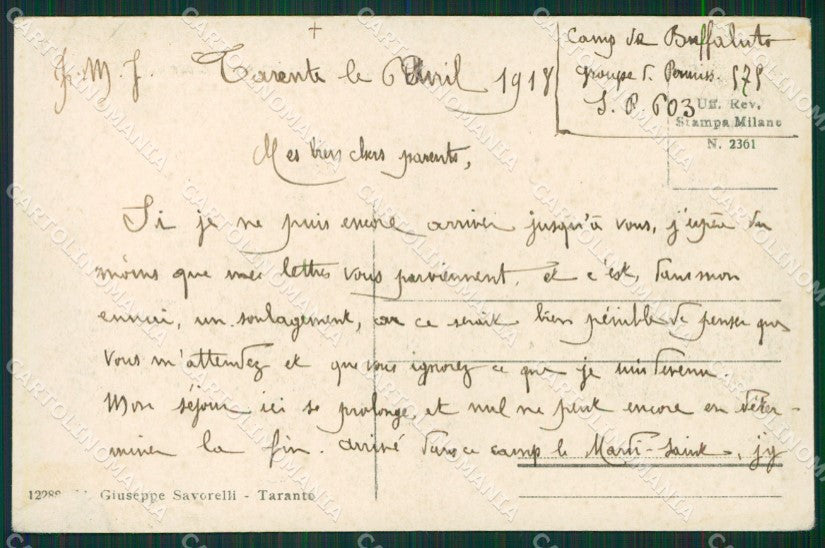 +
J. M. J. Tarente le 6 Avril 1918
Camp de Buffaluto
groupe d. Permiss. 575
S. P. 603
Uff. Rev.
Stampa Milano
N. 2361
Mes bien chers parents,
Si je ne puis encore arriver jusqu'à vous, j'espère du
moins que mes lettres vous parviennent, et c'est, dans mon
ennui, un soulagement, car ce serait bien pénible de penser que
vous m'attendez et que vous ignorez ce que je suis devenu.
Mon séjour ici se prolonge, et nul ne peut encore en déter-
miner la fin. Arrivé dans ce camp le Mardi-Saint, j'y
12288 Giuseppe Savorelli - Taranto
CARTOLINOMANIA